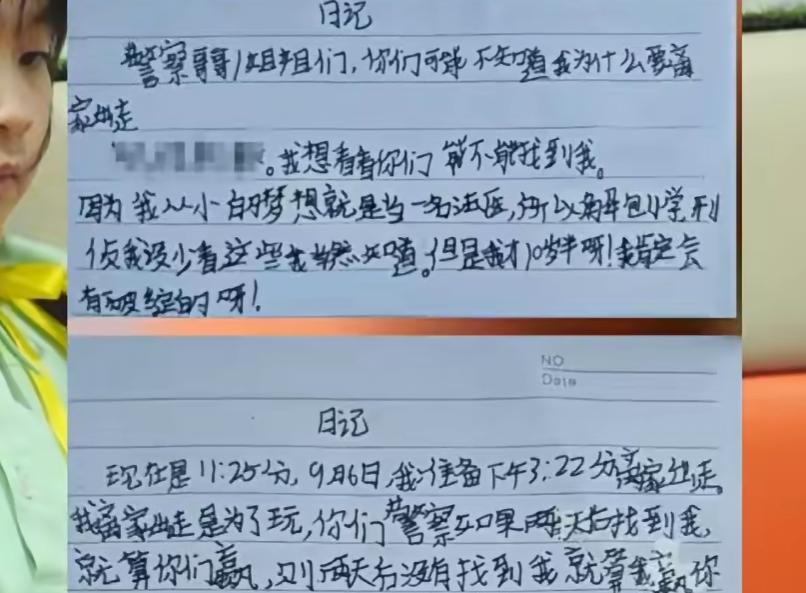 日记
警察哥哥/姐姐们,你们可能不知道我为什么要离
家出走
。我想看看你们能不能找到我。
因为我从小的梦想就是当一名法医,所以解剖学刑
侦我没少看这些我当然知道。但是我才10岁半呀!我肯定会
有破绽的呀!
NO
Date
日记
现在是11:25分,9月6日,我准备下午3:22分离家出走。
我离家出走是为了玩,你们警察如果两天后找到我,
就算你们赢,则两天后没有找到我就算我赢你